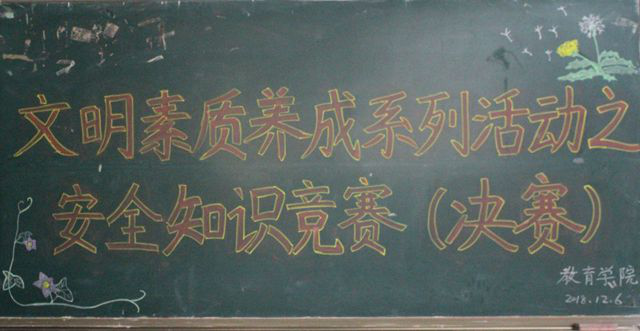 文明素质养成系列活动之
安全知识竞赛（决赛）
教育学院
2018.12.6